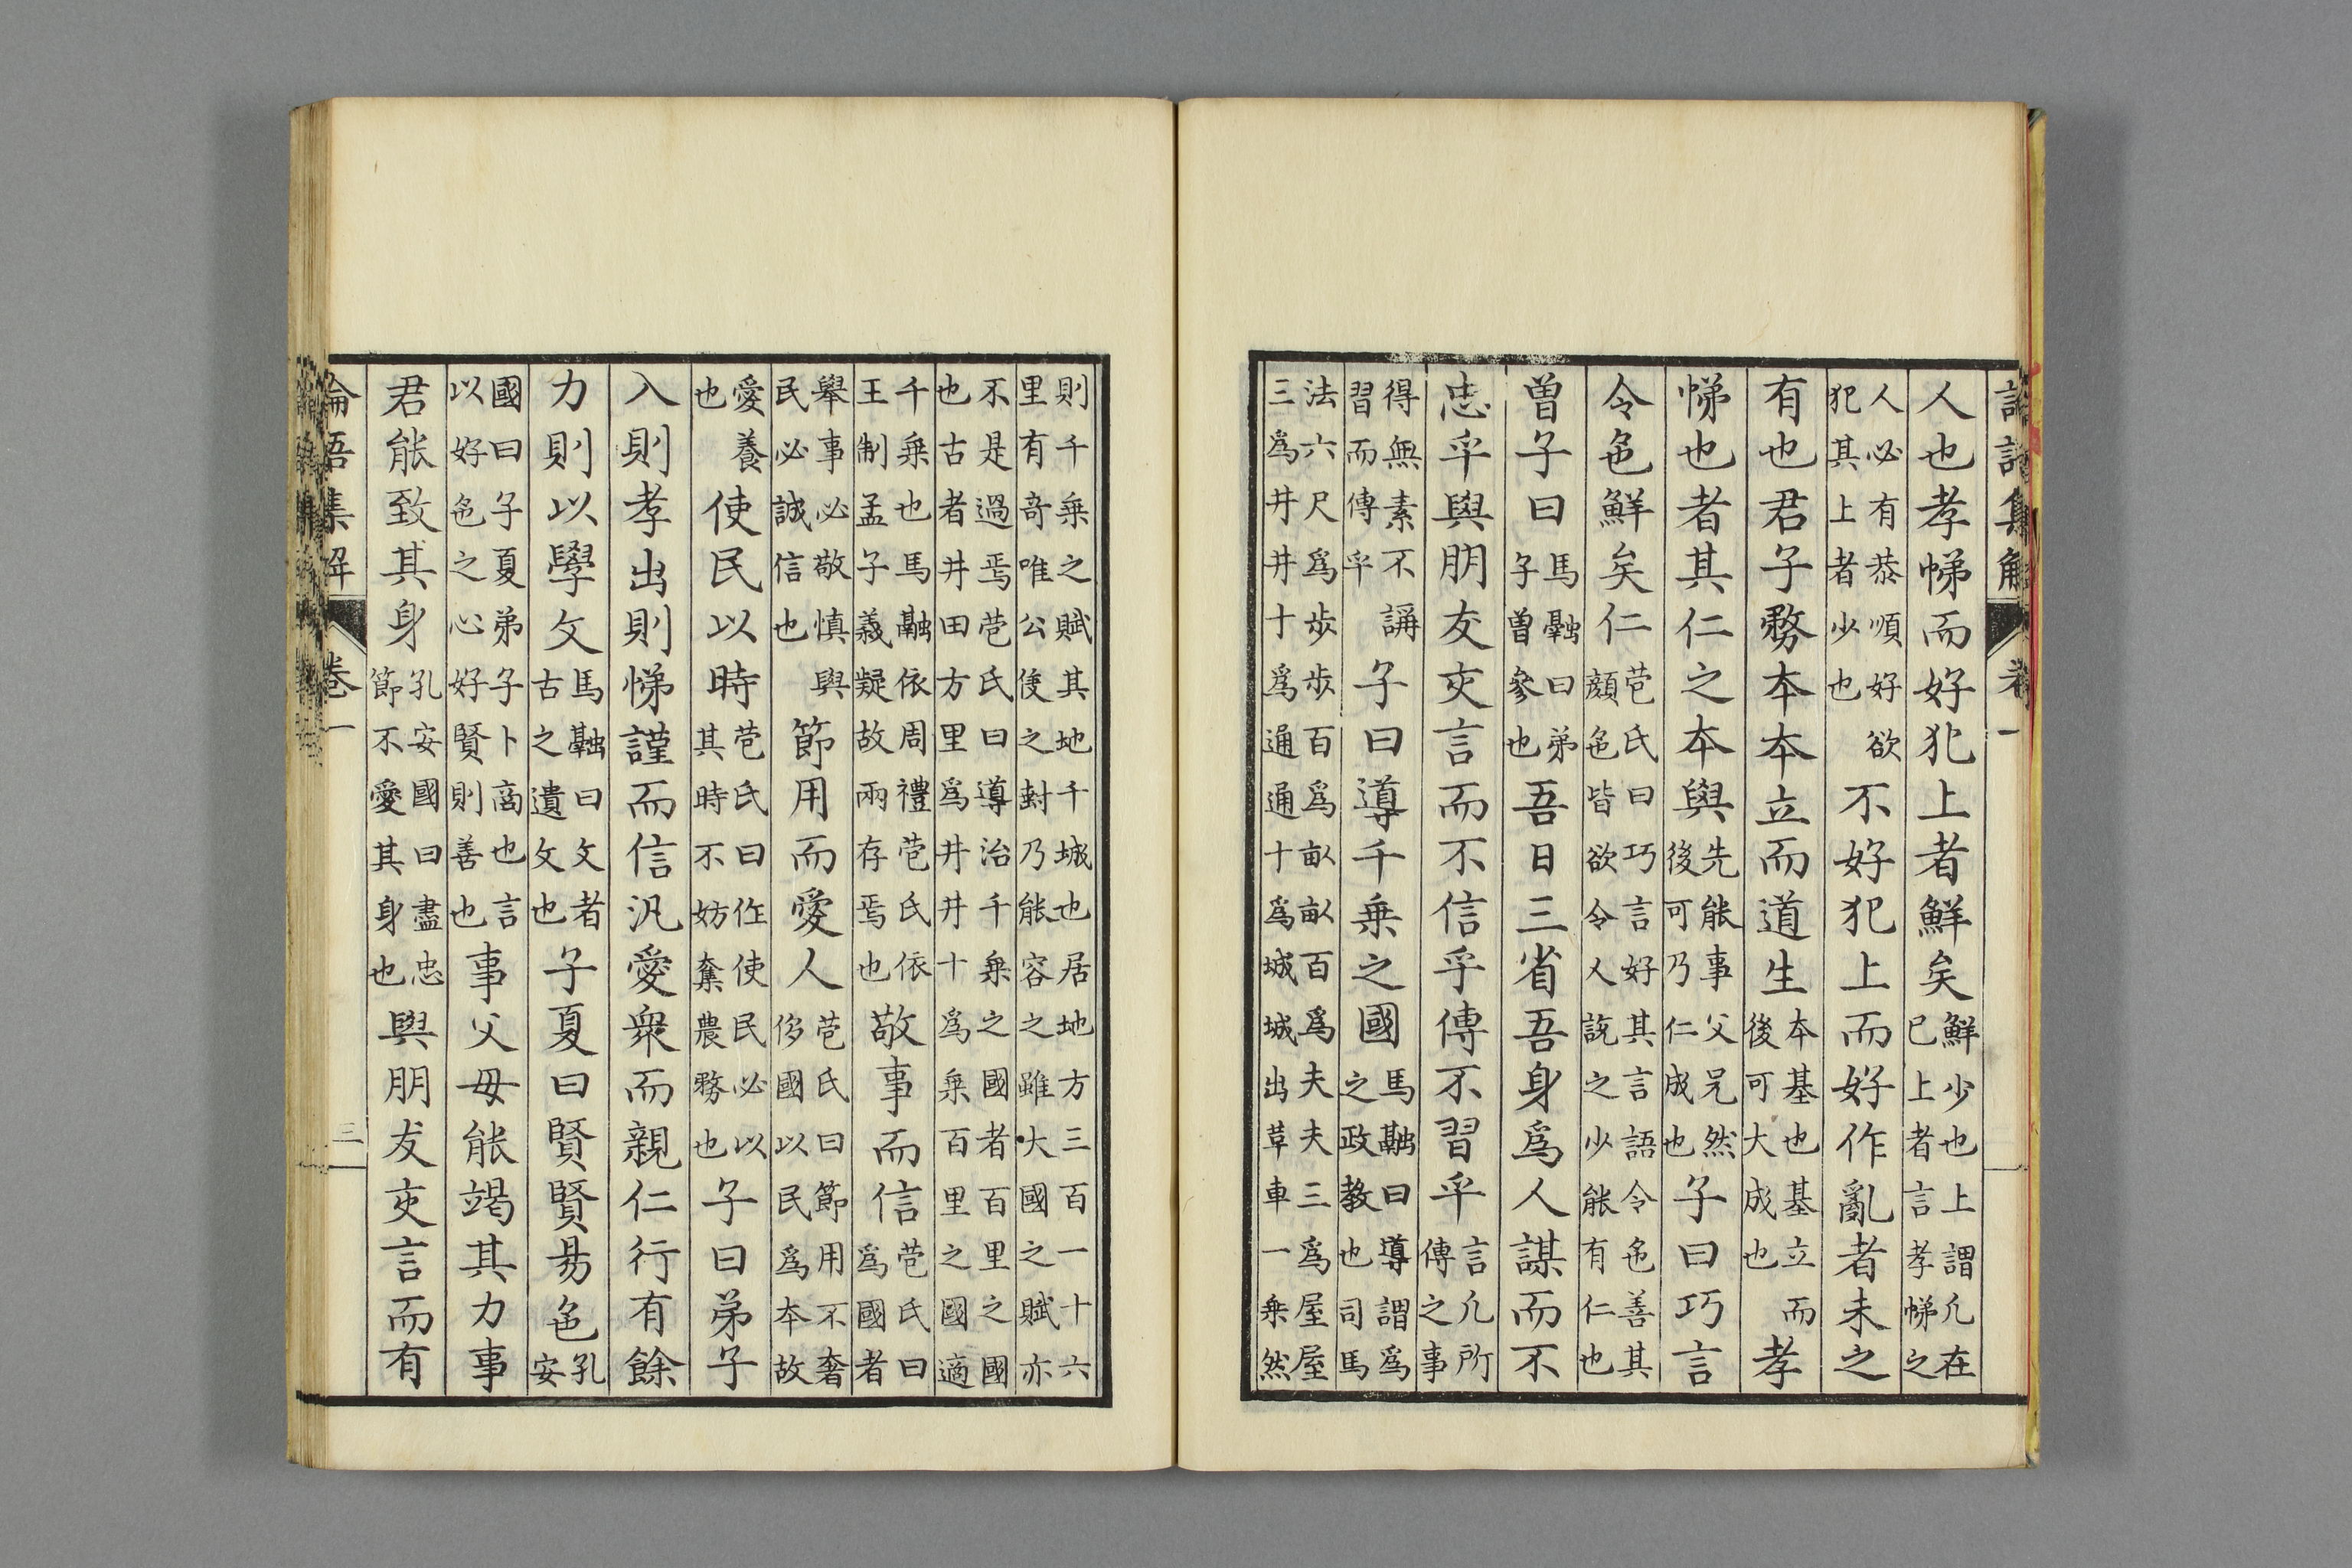 論語集解 卷一
人也孝悌而好犯上者鮮矣鮮少也上謂凡在已上者言孝悌之
人必有恭順好欲犯其上者少也不好犯上而好作亂者未之
有也君子務本本立而道生本基也基立而後可大成也孝
悌也者其仁之本與先能事父兄然後可乃仁成也子曰巧言
令色鮮矣仁苞氏曰巧言好其言語令色善其顔色皆欲令人說之少能有仁也
曽子曰馬融曰弟子曽參也吾日三省吾身爲人謀而不
忠乎與朋友交言而不信乎傳不習乎言凡所傳之事
得無素不講習而傳乎子曰導千乗之國馬融曰導謂爲之政教也司馬
法六尺爲歩歩百爲畞畞百爲夫夫三爲屋屋三爲井井十爲通通十爲城城出革車一乗然
則千乗之賦其地千城也居地方三百一十六里有竒唯公侯之封乃能容之雖大國之賦亦
不是過焉苞氏曰導治千乗之國者百里之國也古者井田方里爲井井十爲乗百里之國適
千乗也馬融依周禮苞氏依王制孟子義疑故兩存焉也敬事而信苞氏曰爲國者
舉事必敬慎與民必誠信也節用而愛人苞氏曰節用不奢侈國以民爲本故
愛養也使民以時苞氏曰作使民必以其時不妨奪農務也子曰弟子
入則孝出則悌謹而信汎愛衆而親仁行有餘
力則以學文馬融曰文者古之遺文也子夏曰賢賢易色孔安
國曰子夏弟子卜商也言以好色之心好賢則善也事父母能竭其力事
君能致其身孔安國曰盡忠節不愛其身也與朋友交言而有
論語集解 卷一 三